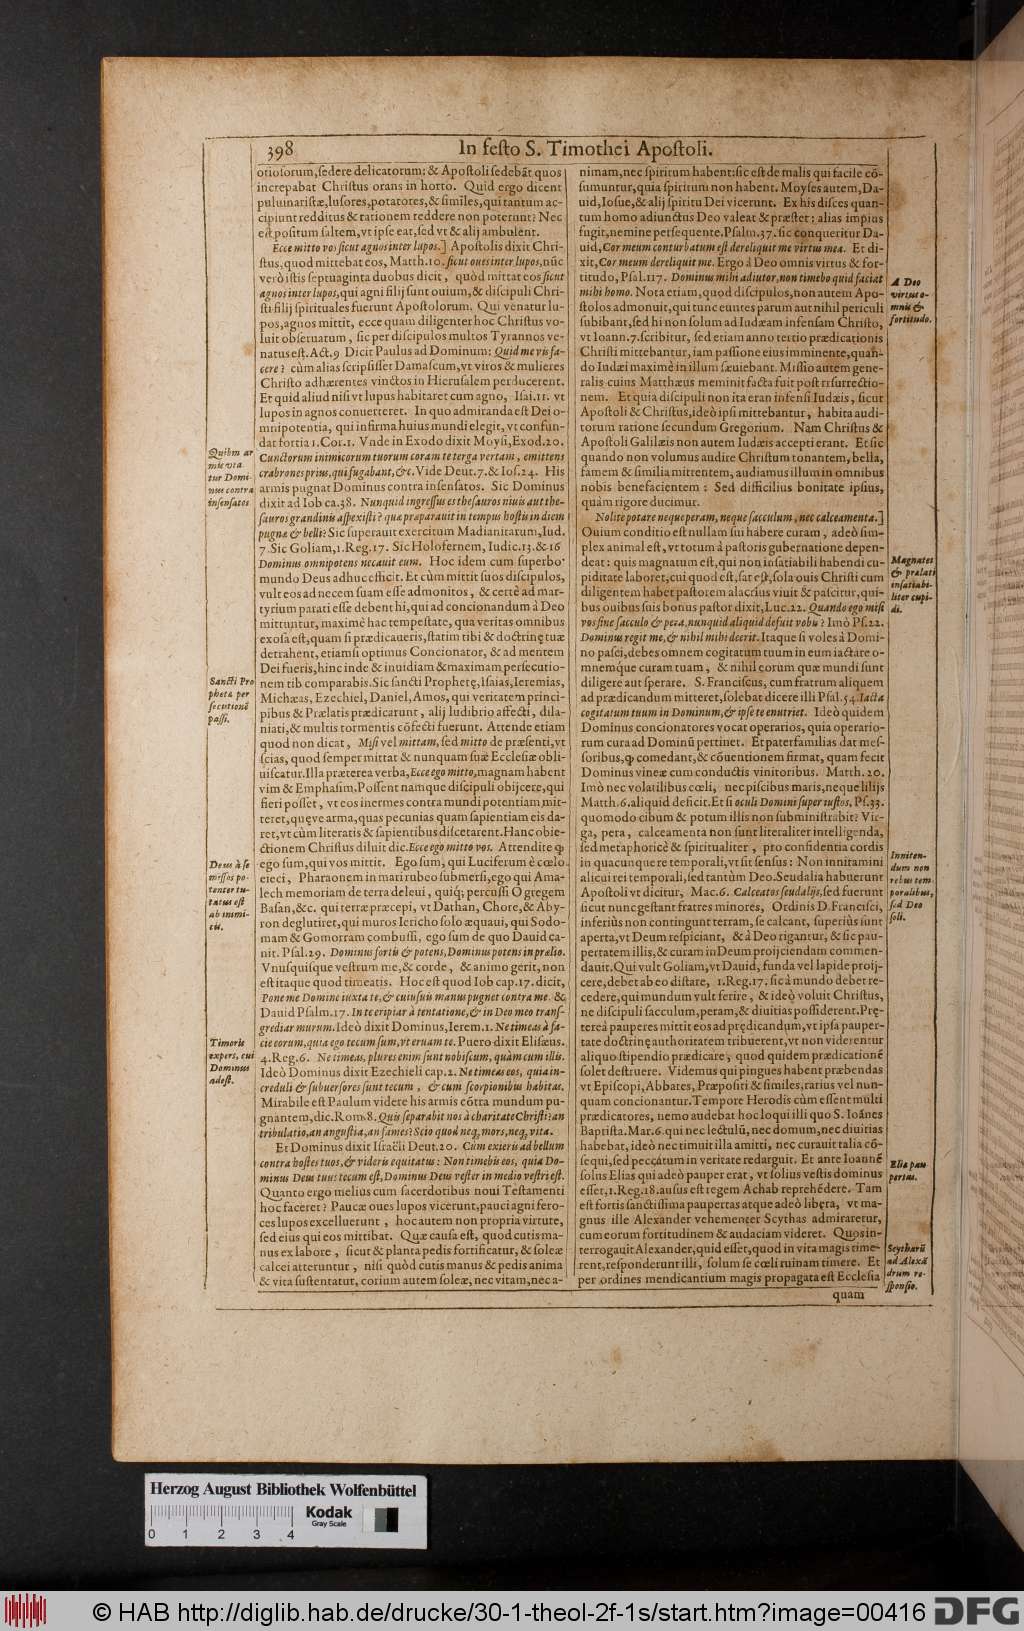 398
In feſto S. Timothei Apoſtoli.
otioſorum, ſedere delicatorum: & Apoſtoli ſedebāt quos
increpabat Chriſtus orans in horto. Quid ergo dicent
puluinariſtæ, luſores, potatores, & ſimiles, qui tantum ac-
cipiunt redditus & rationem reddere non poterunt? Nec
eſt poſitum ſaltem, vt ipſe eat, ſed vt & alij ambulent.
Ecce mitto vos ſicut agnos inter lupos.] Apoſtolis dixit Chri-
ſtus, quod mittebat eos, Matth. 10. ſicut oues inter lupos, nūc
verò iſtis ſeptuaginta duobus dicit, quòd mittat eos ſicut
agnos inter lupos, qui agni filij ſunt ouium, & diſcipuli Chri-
ſti filij ſpirituales fuerunt Apoſtolorum. Qui venatur lu-
pos, agnos mittit, ecce quam diligenter hoc Chriſtus vo-
luit obſeruatum, ſic per diſcipulos multos Tyrannos ve-
natus eſt. Act. 9 Dicit Paulus ad Dominum: Quid me vis fa-
cere? cùm alias ſcripſiſſet Damaſcum, vt viros & mulieres
Chriſto adhærentes vinctos in Hieruſalem perducerent.
Et quid aliud niſi vt lupus habitaret cum agno, Iſai. 11. vt
lupos in agnos conuerteret. In quo admiranda eſt Dei o-
mnipotentia, qui infirma huius mundi elegit, vt confun-
dat fortia 1. Cor. 1. Vnde in Exodo dixit Moyſi, Exod. 20.
Cunctorum inimicorum tuorum coram te terga vertam, emittens
crabrones prius, qui fugabant, &c. Vide Deut. 7. & Ioſ. 24. His
armis pugnat Dominus contra inſenſatos. Sic Dominus
dixit ad Iob ca. 38. Nunquid ingreſſus es theſauros niuis aut the-
ſauros grandinis aſpexiſti? quæ præparauit in tempus hoſtis in diem
pugnæ & belli? Sic ſuperauit exercitum Madianitarum, Iud.
7. Sic Goliam, 1. Reg. 17. Sic Holofernem, Iudic. 13. & 16
Dominus omnipotens necauit eum. Hoc idem cum ſuperbo
mundo Deus adhuc efficit. Et cùm mittit ſuos diſcipulos,
vult eos ad necem ſuam eſſe admonitos, & certè ad mar-
tyrium parati eſſe debent hi, qui ad concionandum à Deo
mittuntur, maximè hac tempeſtate, qua veritas omnibus
exoſa eſt, quam ſi prædicaueris, ſtatim tibi & doctrinę tuæ
detrahent, etiamſi optimus Concionator, & ad mentem
Dei fueris, hinc inde & inuidiam & maximam perſecutio-
nem tib comparabis. Sic ſancti Prophetę, Iſaias, Ieremias,
Michæas, Ezechiel, Daniel, Amos, qui veritatem princi-
pibus & Prælatis prædicarunt, alij ludibrio affecti, dila-
niati, & multis tormentis cōfecti fuerunt. Attende etiam
quod non dicat, Miſi vel mittam, ſed mitto de præſenti, vt
ſcias, quod ſemper mittat & nunquam ſuæ Eccleſiæ obli-
uiſcatur. Illa præterea verba, Ecce ego mitto, magnam habent
vim & Emphaſim, Poſſent namque diſcipuli obijcere, qui
fieri poſſet, vt eos inermes contra mundi potentiam mit-
teret, quęve arma, quas pecunias quam ſapientiam eis da-
ret, vt cùm literatis & ſapientibus diſcetarent. Hanc obie-
ctionem Chriſtus diluit dic. Ecce ego mitto vos. Attendite ꝙ
ego ſum, qui vos mittit. Ego ſum, qui Luciferum è cœlo
eieci, Pharaonem in mari rubeo ſubmerſi, ego qui Ama-
lech memoriam de terra deleui, quiq; percuſſi O gregem
Baſan, &c. qui terræ præcepi, vt Dathan, Chore, & Aby-
ron deglutiret, qui muros Iericho ſolo æquaui, qui Sodo-
mam & Gomorram combuſſi, ego ſum de quo Dauid ca-
nit. Pſal. 29. Dominus fortis & potens, Dominus potens in prælio.
Vnuſquiſque veſtrum me, & corde, & animo gerit, non
eſt itaque quod timeatis. Hoc eſt quod Iob cap. 17. dicit,
Pone me Domine iuxta te, & cuiuſuis manus pugnet contra me. &
Dauid Pſalm. 17. In te eripiar à tentatione, & in Deo meo tranſ-
grediar murum. Ideò dixit Dominus, Ierem. 1. Ne timeas à fa-
cie eorum, quia ego tecum ſum, vt eruam te. Puero dixit Eliſæus.
4. Reg. 6. Ne timeas, plures enim ſunt nobiſcum, quàm cum illis.
Ideò Dominus dixit Ezechieli cap. 2. Ne timeas eos, quia in-
creduli & ſubuerſores ſunt tecum, & cum ſcorpionibus habitas.
Mirabile eſt Paulum videre his armis cōtra mundum pu-
gnantem, dic. Rom. 8. Quis ſeparabit nos à charitate Chriſti? an
tribulatio, an anguſtia, an fames? Scio quod neq, mors, neq, vita.
Et Dominus dixit Iſraëli Deut. 20. Cùm exieris ad bellum
contra hoſtes tuos, & videris equitatus: Non timebis eos, quia Do-
minus Deus tuus tecum eſt, Dominus Deus veſter in medio veſtri eſt.
Quanto ergo melius cum ſacerdotibus noui Teſtamenti
hoc faceret? Paucæ oues lupos vicerunt, pauci agni fero-
ces lupos excelluerunt, hoc autem non propria virtute,
ſed eius qui eos mittibat. Quæ cauſa eſt, quod cutis ma-
nus ex labore, ſicut & planta pedis fortificatur, & ſoleæ
calcei atteruntur, niſi quòd cutis manus & pedis anima
& vita ſuſtentatur, corium autem ſoleæ, nec vitam, nec a-
Quibus ar
mis vta
tur Domi-
nus contra
inſenſatos
Sancti Pro
phetæ per
ſecutionē
paſſi.
Deus à ſe
miſſos po-
tenter tu-
tatus eſt
ab inimi-
cis.
Timoris
expers, cui
Dominus
adeſt.
nimam, nec ſpiritum habent: ſic eſt de malis qui facile cō-
ſumuntur, quia ſpiritum non habent. Moyſes autem, Da-
uid, Ioſue, & alij ſpiritu Dei vicerunt. Ex his diſces quan-
tum homo adiunctus Deo valeat & præſtet: alias impius
fugit, nemine perſequente. Pſalm. 37. ſic conqueritur Da-
uid, Cor meum conturbatum eſt dereliquit me virtus mea. Et di-
xit, Cor meum dereliquit me. Ergo à Deo omnis virtus & for-
titudo, Pſal. 117. Dominus mihi adiutor, non timebo quid faciat
mihi homo. Nota etiam, quod diſcipulos, non autem Apo-
ſtolos admonuit, qui tunc euntes parum aut nihil periculi
ſubibant, ſed hi non ſolum ad Iudæam infenſam Chriſto,
vt Ioann. 7. ſcribitur, ſed etiam anno tertio prædicationis
Chriſti mittebantur, iam paſſione eius imminente, quan-
do Iudæi maximè in illum ſæuiebant. Miſſio autem gene-
ralis cuius Matthæus meminit facta fuit poſt reſurrectio-
nem. Et quia diſcipuli non ita erant infenſi Iudæis, ſicut
Apoſtoli & Chriſtus, ideò ipſi mittebantur, habita audi-
torum ratione ſecundum Gregorium. Nam Chriſtus &
Apoſtoli Galilæis non autem Iudæis accepti erant. Et ſic
quando non volumus audire Chriſtum tonantem, bella,
famem & ſimilia mittentem, audiamus illum in omnibus
nobis benefacientem: Sed difficilius bonitate ipſius,
quàm rigore ducimur.
Nolite potare neque peram, neque ſacculum, nec calceamenta.]
Ouium conditio eſt nullam ſui habere curam, adeò ſim-
plex animal eſt, vt totum à paſtoris gubernatione depen-
deat: quis magnatum eſt, qui non inſatiabili habendi cu-
piditate laboret, cui quod eſt, ſat eſt, ſola ouis Chriſti cum
diligentem habet paſtorem alacrius viuit & paſcitur, qui-
bus ouibus ſuis bonus paſtor dixit, Luc. 22. Quando ego miſi
vos ſine ſacculo & pera, nunquid aliquid defuit vobis? Imò Pſ. 22.
Dominus regit me, & nihil mihi deerit. Itaque ſi voles à Domi-
no paſci, debes omnem cogitatum tuum in eum iactare o-
mnemque curam tuam, & nihil eorum quæ mundi ſunt
diligere aut ſperare. S. Franciſcus, cum fratrum aliquem
ad prædicandum mitteret, ſolebat dicere illi Pſal. 54. Iacta
cogitatum tuum in Dominum, & ipſe te enutriet. Ideò quidem
Dominus concionatores vocat operarios, quia operario-
rum cura ad Dominū pertinet. Et paterfamilias dat meſ-
ſoribus, ꝙ comedant, & cōuentionem firmat, quam fecit
Dominus vineæ cum conductis vinitoribus. Matth. 20.
Imò nec volatilibus cœli, nec piſcibus maris, neque lilijs
Matth. 6. aliquid deficit. Et ſi oculi Domini ſuper iuſtos, Pſ. 33.
quomodo cibum & potum illis non ſubminiſtrabit? Vir-
ga, pera, calceamenta non ſunt literaliter intelligenda,
ſed metaphoricè & ſpiritualiter, pro confidentia cordis
in quacunque re temporali, vt ſit ſenſus: Non innitamini
alicui rei temporali, ſed tantùm Deo. Seudalia habuerunt
Apoſtoli vt dicitur, Mac. 6. Calceatos ſeudalijs, ſed fuerunt
ſicut nunc geſtant fratres minores, Ordinis D. Franciſci,
inferiùs non contingunt terram, ſe calcant, ſuperiùs ſunt
aperta, vt Deum reſpiciant, & à Deo rigantur, & ſic pau-
pertatem illis, & curam in Deum proijciendam commen-
dauit. Qui vult Goliam, vt Dauid, funda vel lapide proij-
cere, debet ab eo diſtare, 1. Reg. 17. ſic à mundo debet re-
cedere, qui mundum vult ferire, & ideò voluit Chriſtus,
ne diſcipuli ſacculum, peram, & diuitias poſſiderent. Prę-
tereà pauperes mittit eos ad prędicandum, vt ipſa pauper-
tate doctrinę authoritatem tribuerent, vt non viderentur
aliquo ſtipendio prædicare, quod quidem prædicationē
ſolet deſtruere. Videmus qui pingues habent præbendas
vt Epiſcopi, Abbates, Præpoſiti & ſimiles, rarius vel nun-
quam concionantur. Tempore Herodis cùm eſſent multi
prædicatores, nemo audebat hoc loqui illi quo S. Ioānes
Baptiſta. Mar. 6. qui nec lectulū, nec domum, nec diuitias
habebat, ideò nec timuit illa amitti, nec curauit talia cō-
ſequi, ſed peccatum in veritate redarguit. Et ante Ioannē
ſolus Elias qui adeò pauper erat, vt ſolius veſtis dominus
eſſet, 1. Reg. 18. auſus eſt regem Achab reprehēdere. Tam
eſt fortis ſanctiſſima paupertas atque adeò libera, vt ma-
gnus ille Alexander vehementer Scythas admiraretur,
cum eorum fortitudinem & audaciam videret. Quos in-
terrogauit Alexander, quid eſſet, quod in vita magis time-
rent, reſponderunt illi, ſolum ſe cœli ruinam timere. Et
per ordines mendicantium magis propagata eſt Eccleſia
quam
A Deo
virtus o-
mnis &
fortitudo.
Magnates
& prælati
inſatiabi-
liter cupi-
di.
Inniten-
dum non
rebus tem
poralibus,
ſed Deo
ſoli.
Elia pau
pertas.
Scytharū
ad Alexā
drum re-
ſponſio.
Herzog August Bibliothek Wolfenbüttel
Kodak
Gray Scale
0 1 2 3 4
© HAB http://diglib.hab.de/drucke/30-1-theol-2f-1s/start.htm?image=00416
DFG